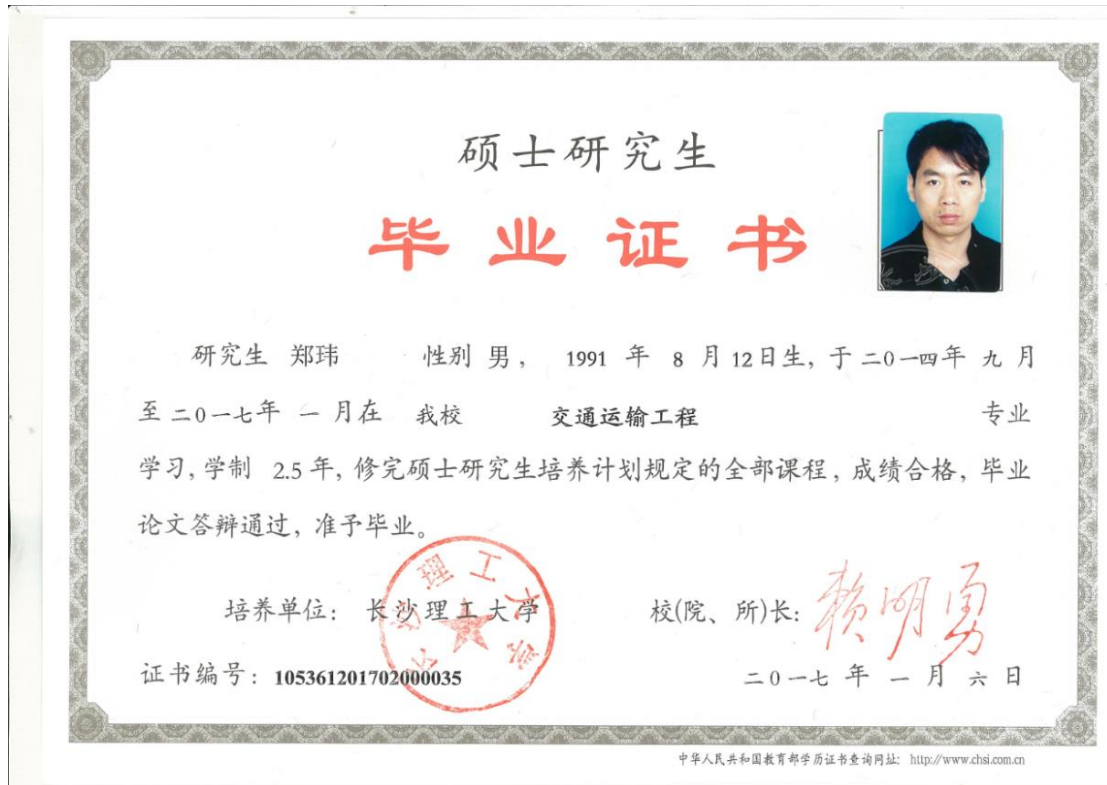 硕士研究生
毕业证书
研究生 郑玮 性别 男， 1991 年 8 月 12日生，于 二0一四年 九 月
至 二0一七年 一 月在 我校 交通运输工程 专业
学习，学制 2.5 年，修完硕士研究生培养计划规定的全部课程，成绩合格，毕业
论文答辩通过，准予毕业。
培养单位：长沙理工大学 校(院、所)长: 赖明勇
长沙理工大学
证书编号：105361201702000035 二0一七 年 一 月 六 日
中华人民共和国教育部学历证书查询网址: http://www.chsi.com.cn